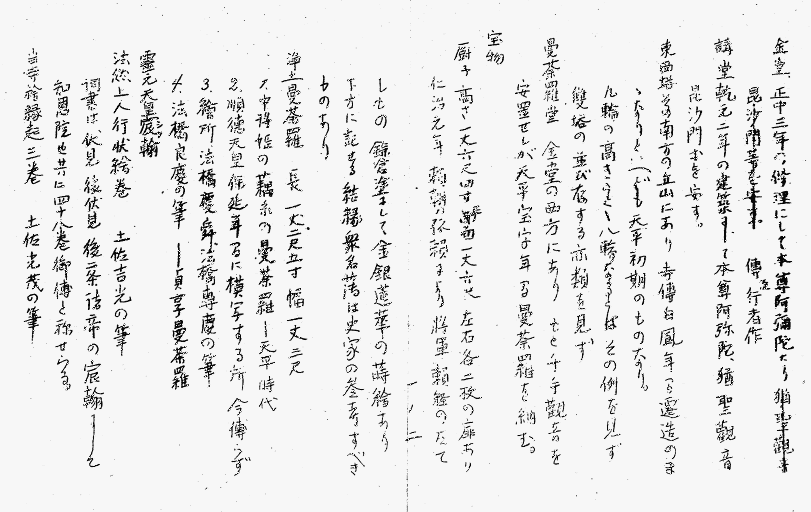 金堂、正中三年の修理にして本尊阿彌陀なり
毘沙門等を安す。 傳 行者作
講堂 乾元二年の建築にして本尊阿弥陀、猶聖觀音
毘沙門等を安す。
東西塔 その南方の丘山にあり 寺傳白鳳年間遷造のま
ゝなりといへども 天平初期のものなり。
九輪の高き 八輪なることはその例を見ず
雙塔の並び存する 類を見ず
曼荼羅堂 金堂の西方にあり もと千手觀音を
安置せしが 天平宝字年間曼荼羅を納む。
宝物
厨子 高さ一丈六尺四寸 一丈六尺 左右各二枚の扉あり
仁治元年 賴朝の依賴により 將軍賴經のたて
しもの 鎌倉塗にして金銀蓮華の蒔繪あり
下方に記する結縁衆名簿は史家の參考すべき
ものあり
浄土曼荼羅 長一丈二尺五寸 幅一丈三尺
1. 中将姫の藕糸の曼荼羅 ― 天平時代
2. 順德天皇 年間に横写する所 今傳らず
3. 繪所 法橋慶舜 法橋專慶の筆
4. 法橋良慶の筆 ― 貞享曼荼羅
靈元天皇宸翰
法然上人行状絵巻 土佐吉光の筆
詞書は伏見 後伏見 後二条諸帝の宸翰にして
知恩院也 共に四十八巻御傳と称せらる
当寺繪縁起三巻 土佐光茂の筆